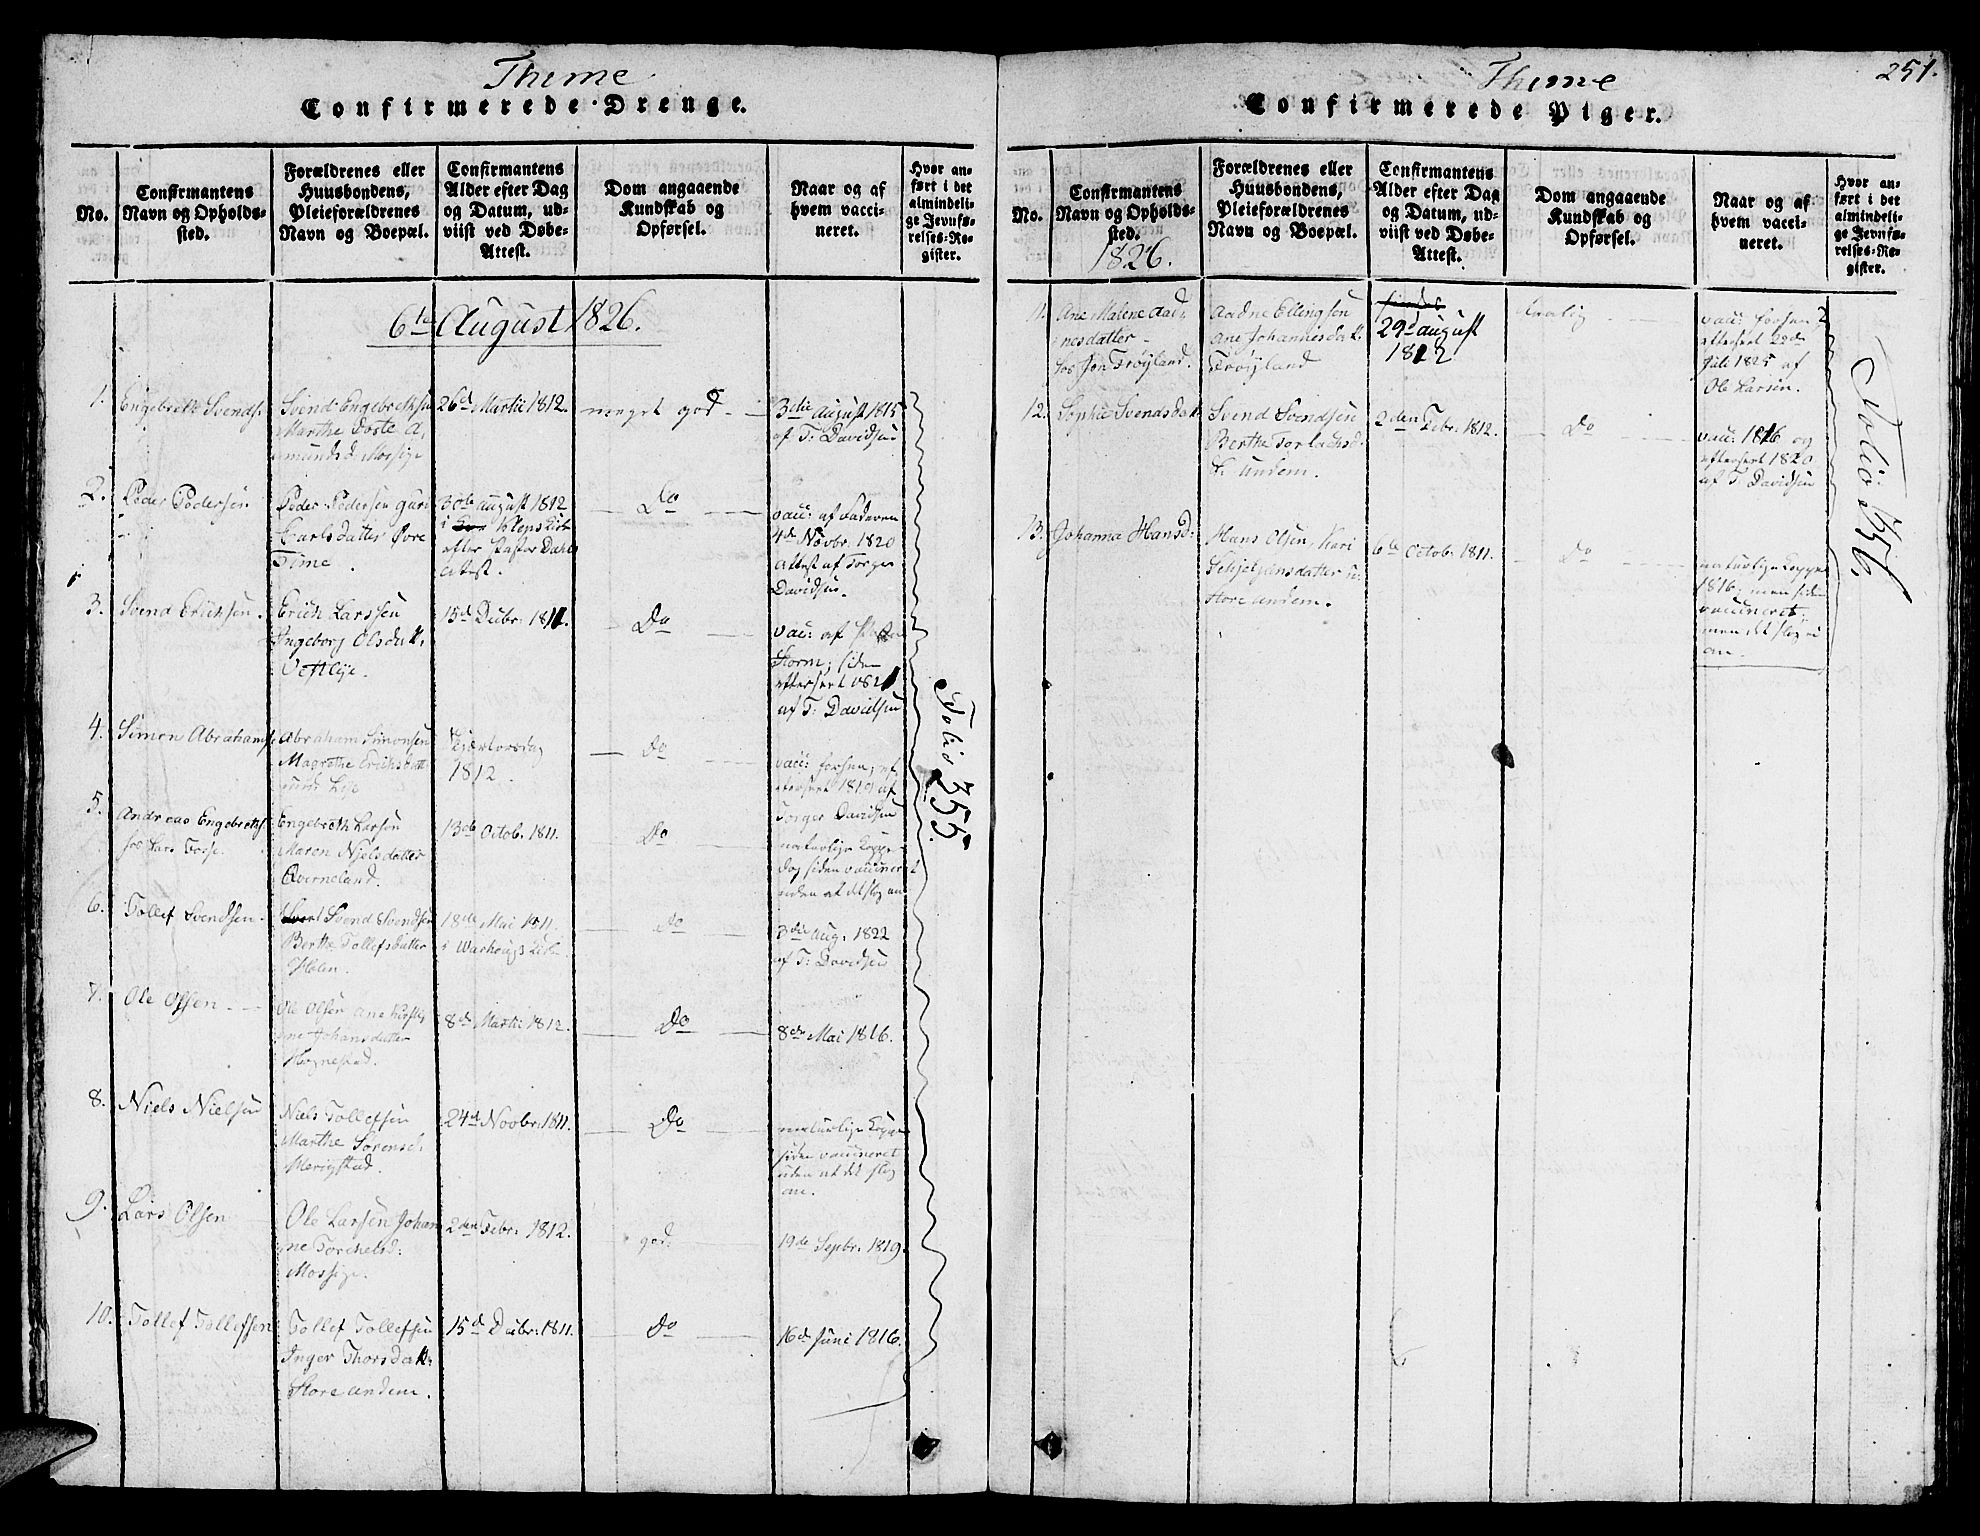 Thime
Confirmerede Drenge.
No.
Confirmantens
Navn og Opholds-
sted.
Forældrenes eller
Huusbondens,
Pleieforældrenes
Navn og Boepæl.
Confirmantens
Alder efter Dag
og Datum, ud-
viist ved Døbe-
Attest.
Dom angaaende
Kundskab og
Opførsel.
Naar og af
hvem vacci-
neret.
Hvor an-
ført i det
almindeli-
ge Jevnfø-
relses-Re-
gister.
6te August 1826.
1.
Engebreth Svends.
Svend Engebrethsen
Marthe Dorte A,
munds d. Mossige
26d Martii 1812.
meget god
3die august 1815
af T: Davidsen
2.
Peder Pedersen
Peder Pedersen Guri
Carlsdatter Øvre
Time.
30te august 1812
i Kleps Kirke
efter Pastor Dahls
Attest.
Do
vac: af Faderen
4de Novbr. 1820
Attest af Torger
Davidsen.
3.
Svend Erichsen.
Erich Larssen
Ingeborg Olsdatt.
Vestlye.
15d Decbr. 1811.
Do
vac: af
Storm; siden
efterseet 1821
af T: Davidsen
4.
Simon Abrahams.
Abraham Simonsen
Magrethe Erichsdatt.
Lye
Skjærtorsdag
1812.
Do
vac: forhen, og
efterseet 1819 af
Torger Davidsen
5.
Andreas Engebreths.
hos Lars Fosse.
Engebreth Larsen
Maren Njelsdatter
Qverneland.
13de Octob. 1811.
Do
naturlige Kopper
dog siden vaccineret
uden at det slog an
6.
Tollef Svendsen
Svend Svendsen
Berthe Tollefsdatter
Holen.
18de Mai 1811.
i Warhougs Kirke
Do
3die Aug. 1822
af T: Davidsen
7.
Ole Olsen
Ole Olsen Ane Kirsti,
ne Johansdatter
Hognestad.
8de Martii 1812.
Do
8de Mai 1816.
8.
Niels Nielsen
Niels Tollefsen
Marthe Sørensd.
Merigstad.
24d Novbr. 1811.
Do
naturlige Kopper
siden vaccineret
uden at det slog
an.
9.
Lars Olsen
Ole Larsen Johan
ne Torchelsd:
Mossige.
2den Febr. 1812.
god.
19de Septbr. 1819.
10.
Tollef Tollefsen
Tollef Tollefsen
Inger Thorsdatt.
Store Undem.
15d Decbr. 1811.
Do
16d Juni 1816.
Folio 355.
251.
Thime
Confirmerede Piger.
No.
Confirmantens
Navn og Opholds-
sted.
1826.
Forældrenes eller
Huusbondens,
Pleieforældrenes
Navn og Boepæl.
Confirmantens
Alder efter Dag
og Datum, ud-
viist ved Døbe-
Attest.
Dom angaaende
Kundskab og
Opførsel.
Naar og af
hvem vacci-
neret.
Hvor an-
ført i det
almindeli-
ge Jevnfø-
relses-Re-
gister.
11.
Ane Malene Aad,
nesdatter
hos Jon Frøyland.
Aadne Ellingsen
Ane Johannesdatt.
Frøyland
29d august
1812
vac: forhen
efterseet 22de
Juli 1825 af
Ole Larsen.
12.
Sophie Svendsdatt.
Svend Svendsen
Berthe Torlachsd.
L. Undem.
2den Febr. 1812.
Do
vac: 1816 og
efterseet 1820
af T: Davidsen
13.
Johanna Hansd:
Hans Olsen, Kari
Schjeljensdatter
Store Undem.
6te Octob. 1811.
Do
naturlige Kopper
1816, men siden
vaccineret,
men det slog ei
an.
Folio 356.